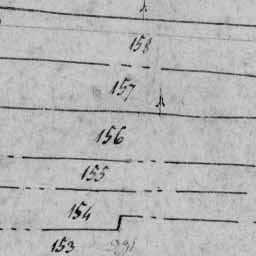 158
157
156
155
154
153